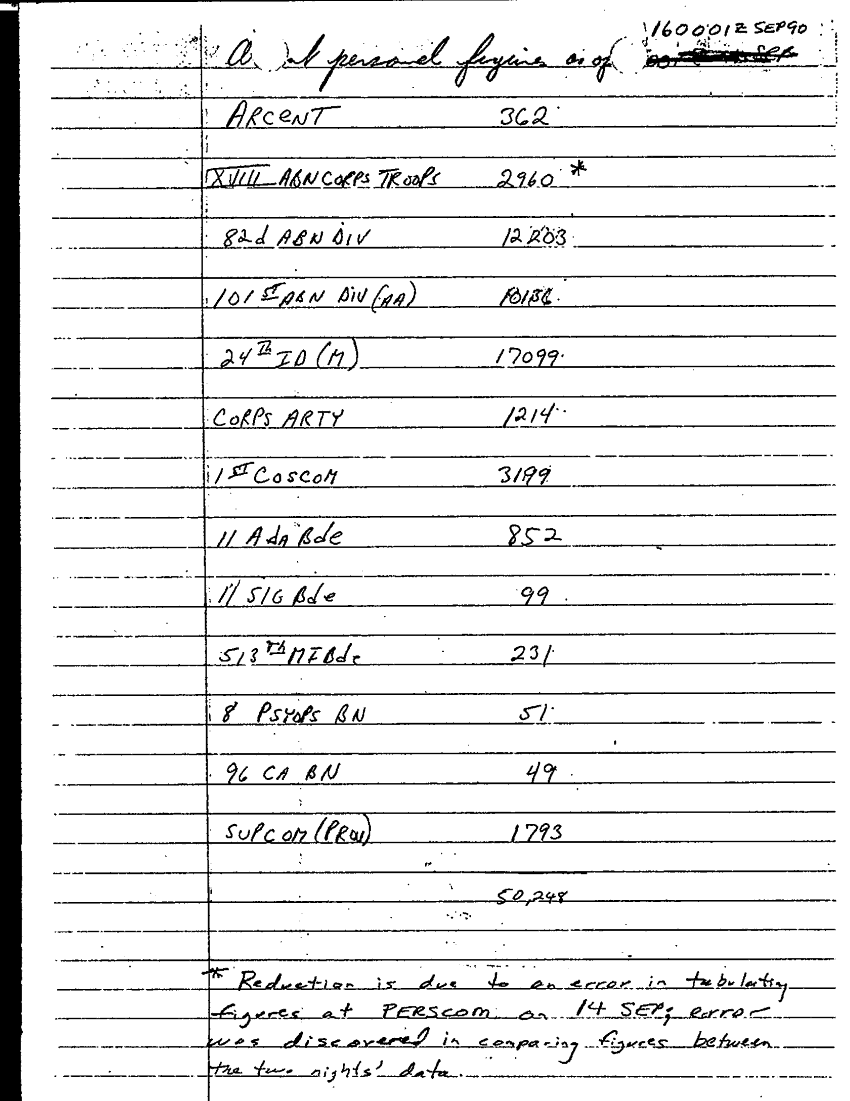 160001Z SEP90
personel figures as of
ARCENT 362
XVIII ABN CORPS TROOPS 2960 *
82d ABN DIV 12203
101ST ABN DIV (AA) 10136
24Th ID (M) 17099
CORPS ARTY 1214
1ST COSCOM 3199
11 ADA Bde 852
11 SIG Bde 99
513Th MI Bde 231
8 PSYOPS BN 51
96 CA BN 49
SUPCOM (PROV) 1793
50,248
* Reduction is due to an error in tabulating
figures at PERSCOM on 14 SEP; error
was discovered in comparing figures between
the two nights' data.